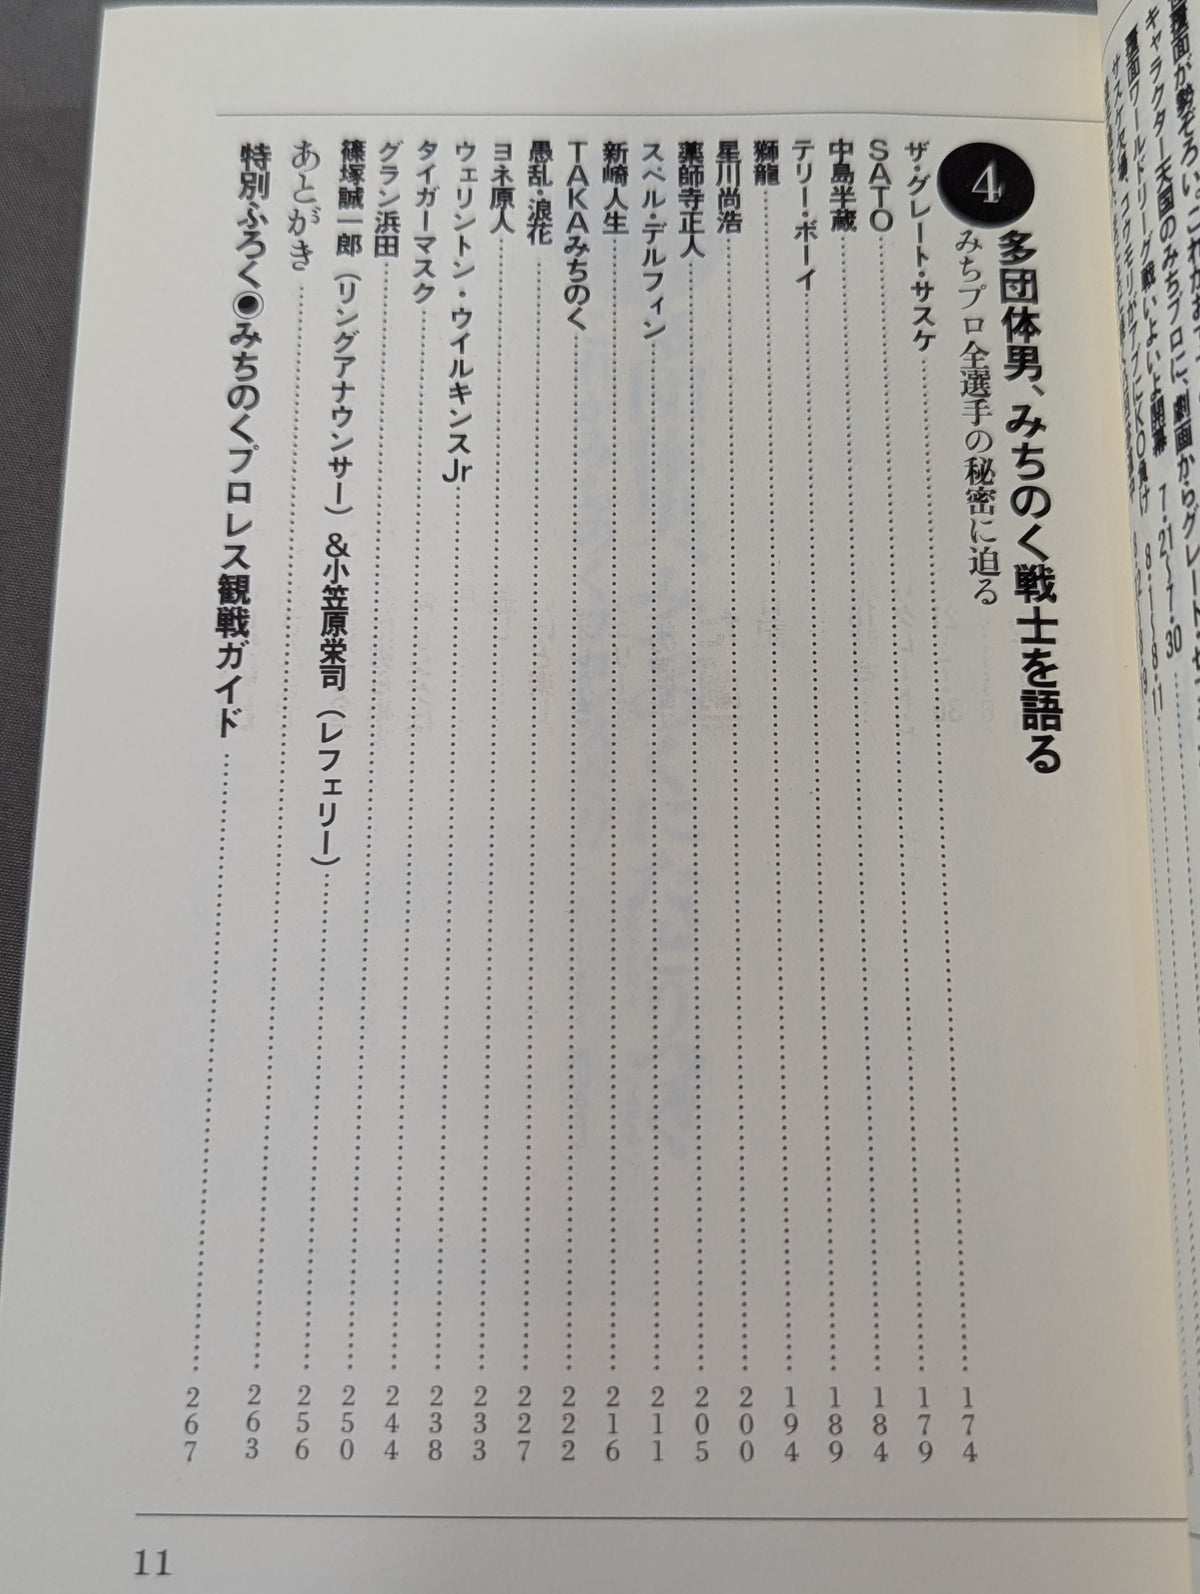 キャラクター天国のみちプロに、劇画からグレート・
覆面ワールドリーグ戦いよいよ開幕 7・21〜7・30
8・1〜8・11
4 多団体男、みちのく戦士を語る
みちプロ全選手の秘密に迫る
ザ・グレート・サスケ 174
SATO 179
中島半蔵 184
テリー・ボーイ 189
獅龍 194
星川尚浩 200
薬師寺正人 205
スペル・デルフィン 211
新崎人生 216
TAKAみちのく 222
愚乱・浪花 227
ヨネ原人 233
ウェリントン・ウイルキンスJr 238
タイガーマスク 244
グラン浜田 250
篠塚誠一郎（リングアナウンサー）&小笠原栄司（レフェリー） 256
あとがき 263
特別ふろく◉みちのくプロレス観戦ガイド 267
11